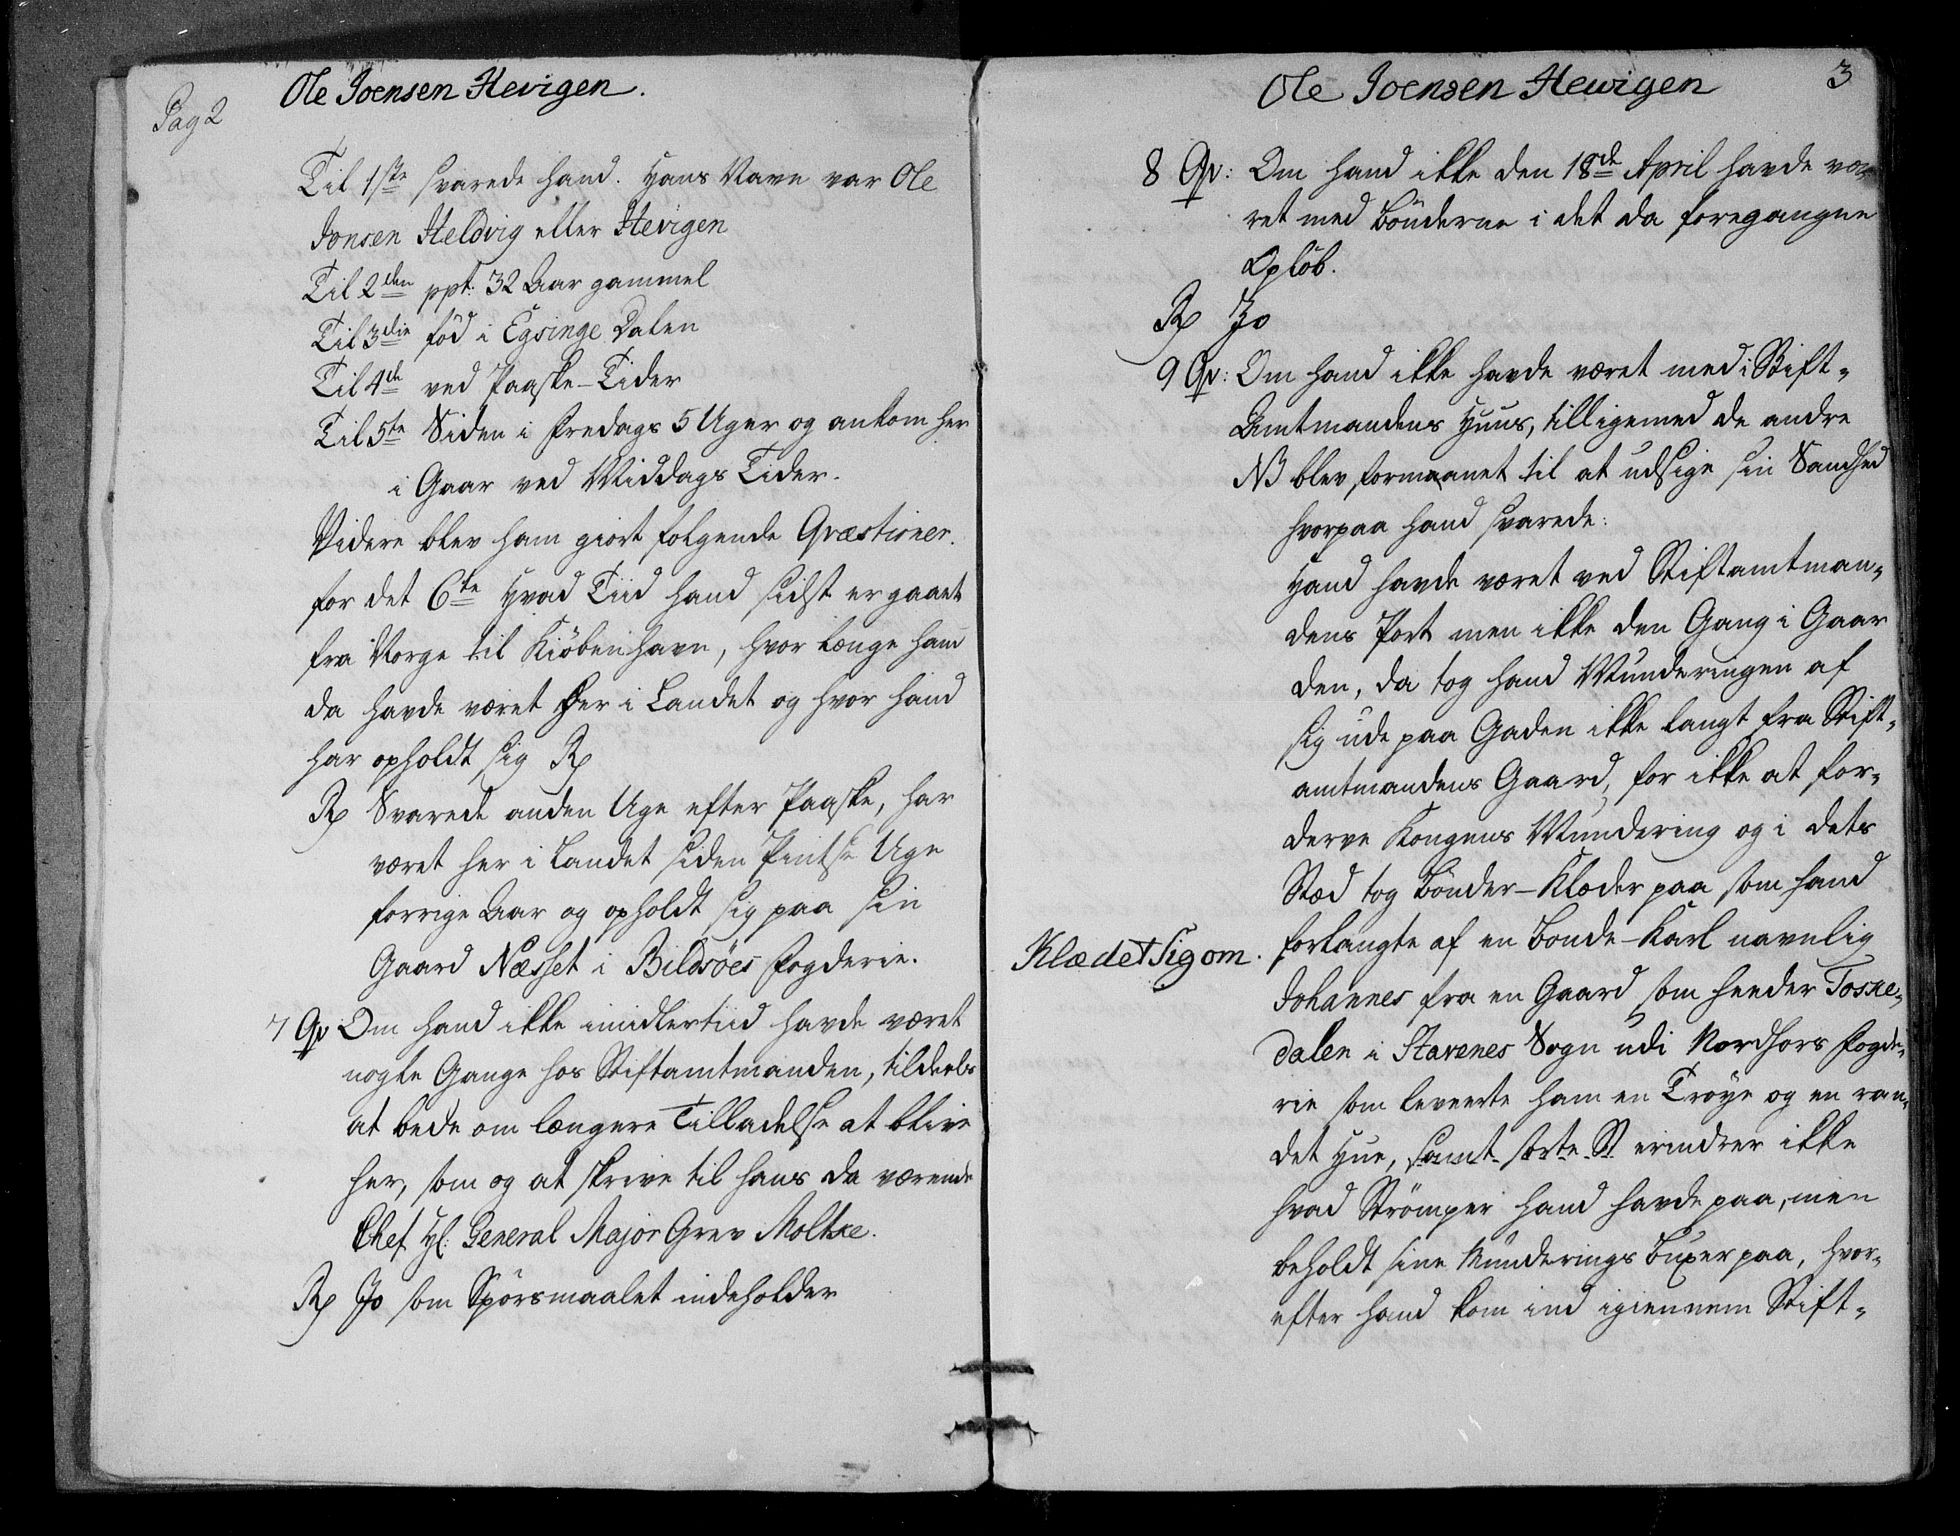 Pag 2
Ole Joensen Hevigen.
Til 1ste svarede hand. Hans Navn var Ole
Jonsen Heldvig eller Hevigen
Til 2den ppt: 32 Aar gammel
Til 3die föd i Egsinge Dalen
Til 4de ved Paaske-Tider
Til 5te Siden i Fredags 5 Uger og ankom her
i Gaar ved Middags Tider.
Videre blev ham giort følgende Qvæstioner.
for det 6te Hvad Tiid hand sidst er gaaet
fra Norge til Kiöbenhavn, hvor længe hand
da havde været her i Landet og hvor hand
har opholdt sig Rp
Rp Svarede anden Uge efter Paaske, har
været her i Landet siden Pintse Uge
forrige Aar og opholdt sig paa sin
Gaard Næsset i Bildsöes Fogderie.
7 Qv Om hand ikke imidlertiid havde været
nogle Gange hos Stiftamtmanden, tildeels
at bede om længere Tilladelse at blive
her, som og at skrive til hans da værende
Chef Hl: General Major Grev Moltke.
Rp Jo som Spörsmaalet indeholder
Ole Joensen Hewigen
3
8 Qv: Om hand ikke den 18de April havde væ-
ret med Bönderne i det da foregangne
Oplöb.
Rp Jo
9 Qv: Om hand ikke havde været med i Stift-
Amtmandens Huus, tilligemed de andre
NB blev formaanet til at udsige sin Sandhed
hvorpaa hand svarede:
Hand havde været ved Stiftamtman-
dens Port men ikke den Gang i Gaar
den, da tog hand Munderingen af
sig ude paa Gaden ikke langt fra Stift-
amtmandens Gaard, for ikke at for-
derve Kongens Mundering og i dets
Stæd tog Bönder-Klæder paa som hand
Klædet sig om.
forlangte af en Bonde-Karl navnlig
Johannes fra en Gaard som heeder Toske-
dalen i Stavenes Sogn udi Nordhors Fogde-
rie som leveerte ham en Tröye og en ran-
det Hue, samt sorte St erindrer ikke
hvad Strömper hand havde paa, men
beholdt sine Munderings Buxer paa, hvor-
efter hand kom ind igiennem Stift-